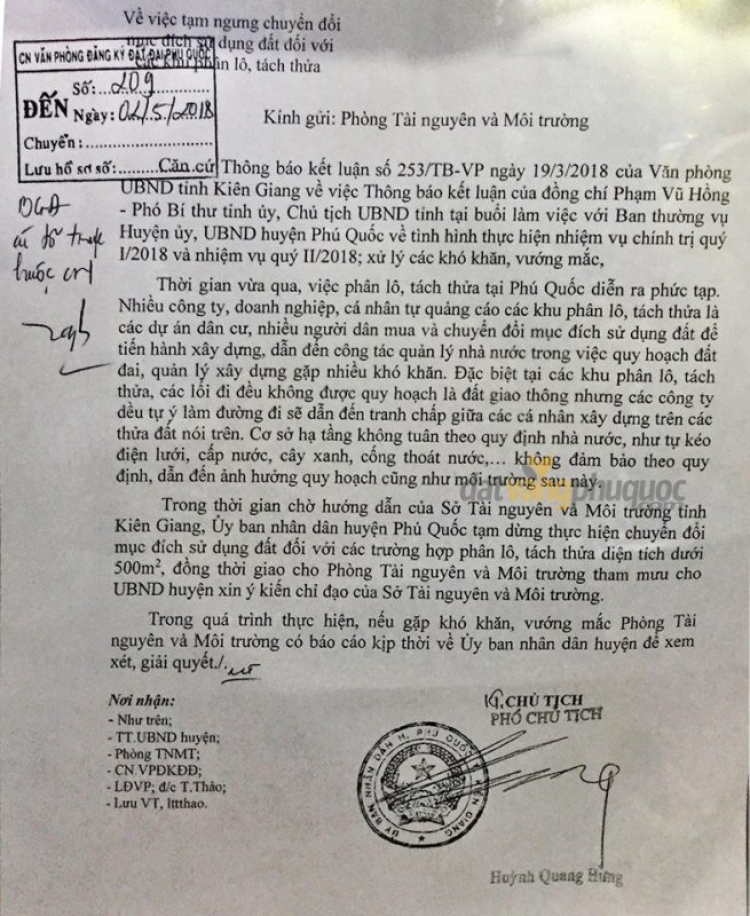 Về việc tạm ngưng chuyển đổi
mục đích sử dụng đất đối với
các khu phân lô, tách thửa
CN VĂN PHÒNG ĐĂNG KÝ ĐẤT ĐAI PHÚ QUỐC
ĐẾN
Số:...209
Ngày: 02/5/2018
Chuyển:
Lưu hồ sơ số:
Kính gửi: Phòng Tài nguyên và Môi trường
Căn cứ Thông báo kết luận số 253/TB-VP ngày 19/3/2018 của Văn phòng
UBND tỉnh Kiên Giang về việc Thông báo kết luận của đồng chí Phạm Vũ Hồng
- Phó Bí thư tỉnh ủy, Chủ tịch UBND tỉnh tại buổi làm việc với Ban thường vụ
Huyện ủy, UBND huyện Phú Quốc về tình hình thực hiện nhiệm vụ chính trị quý
I/2018 và nhiệm vụ quý II/2018; xử lý các khó khăn, vướng mắc,
Thời gian vừa qua, việc phân lô, tách thửa tại Phú Quốc diễn ra phức tạp.
Nhiều công ty, doanh nghiệp, cá nhân tự quảng cáo các khu phân lô, tách thửa là
các dự án dân cư, nhiều người dân mua và chuyển đổi mục đích sử dụng đất để
tiến hành xây dựng, dẫn đến công tác quản lý nhà nước trong việc quy hoạch đất
đai, quản lý xây dựng gặp nhiều khó khăn. Đặc biệt tại các khu phân lô, tách
thửa, các lối đi đều không được quy hoạch là đất giao thông nhưng các công ty
đều tự ý làm đường đi sẽ dẫn đến tranh chấp giữa các cá nhân xây dựng trên các
thửa đất nói trên. Cơ sở hạ tầng không tuân theo quy định nhà nước, như tự kéo
điện lưới, cấp nước, cây xanh, cống thoát nước,... không đảm bảo theo quy
định, dẫn đến ảnh hưởng quy hoạch cũng như môi trường sau này.
datvangphuquoc
Trong thời gian chờ hướng dẫn của Sở Tài nguyên và Môi trường tỉnh
Kiên Giang, Ủy ban nhân dân huyện Phú Quốc tạm dừng thực hiện chuyển đổi
mục đích sử dụng đất đối với các trường hợp phân lô, tách thửa diện tích dưới
500m², đồng thời giao cho Phòng Tài nguyên và Môi trường tham mưu cho
UBND huyện xin ý kiến chỉ đạo của Sở Tài nguyên và Môi trường.
Trong quá trình thực hiện, nếu gặp khó khăn, vướng mắc Phòng Tài
nguyên và Môi trường có báo cáo kịp thời về Ủy ban nhân dân huyện để xem
xét, giải quyết./.
Nơi nhận:
- Như trên;
- TT.UBND huyện;
- Phòng TNMT;
- CN.VPĐKĐĐ;
- LĐVP; đ/c T.Thảo;
- Lưu VT, lttthao.
KT.CHỦ TỊCH
PHÓ CHỦ TỊCH
ỦY BAN NHÂN DÂN H. PHÚ QUỐC T. KIÊN GIANG
Huỳnh Quang Hưng